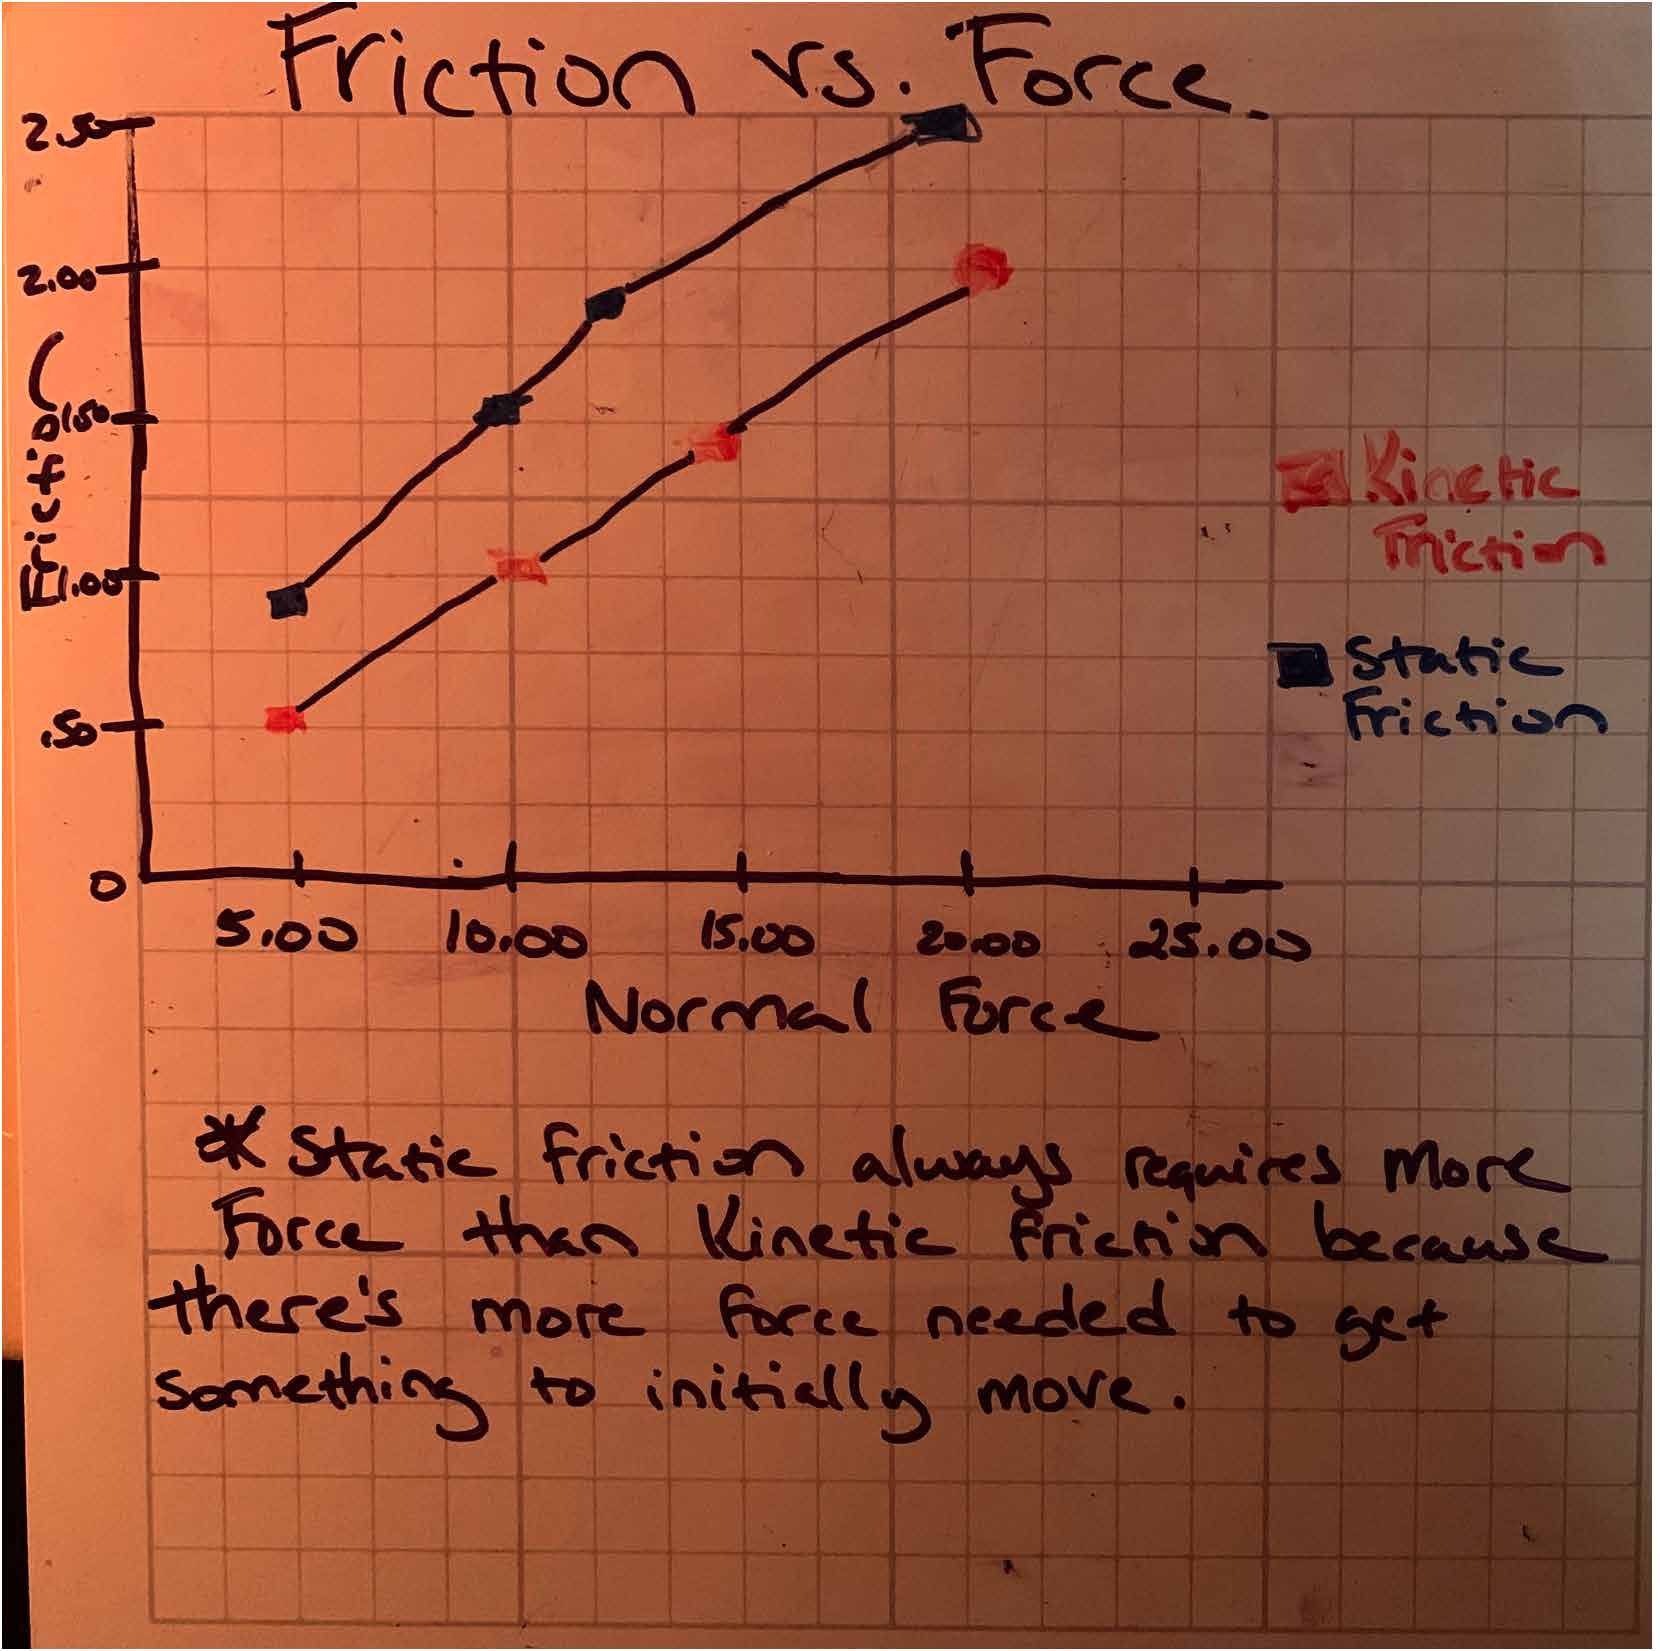 Friction vs. Force
2.50
2.00
1.50
1.00
.50
0
Friction
5.00 10.00 15.00 20.00 25.00
Normal Force
Kinetic
Friction
Static
Friction
* Static friction always requires more
Force than Kinetic friction because
there's more force needed to get
something to initially move.